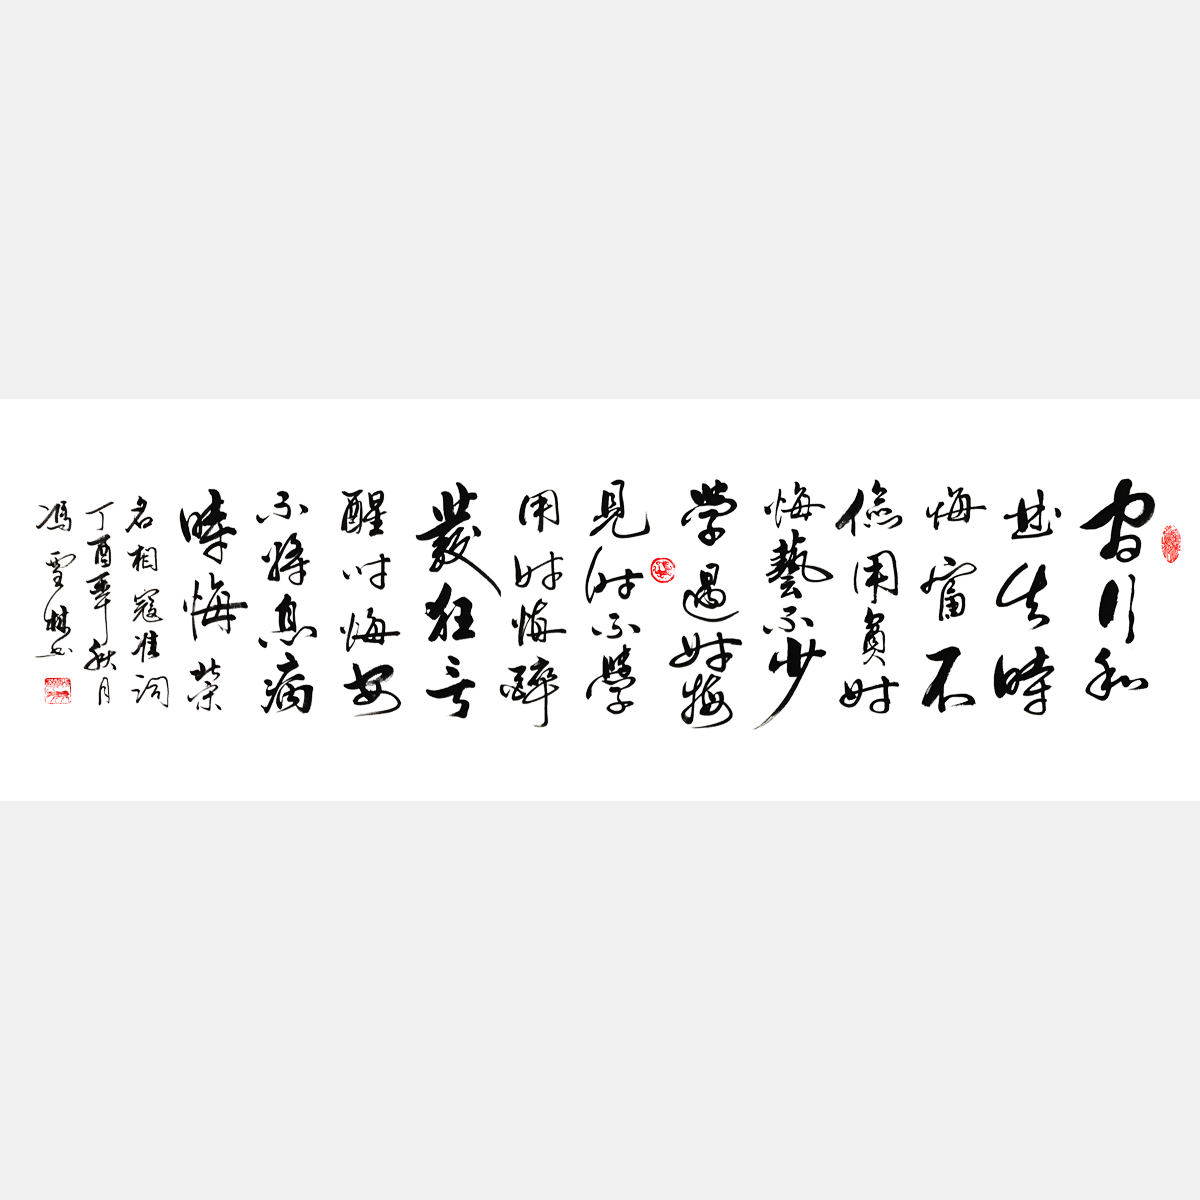 官行私
曲失時
悔富不
儉用貧时
悔藝不少
學過时悔
見时不學
用时悔醉
發狂言
醒时悔安
不將息病
時悔北宋
名相寇准詞
丁酉秋月
馮雪林书